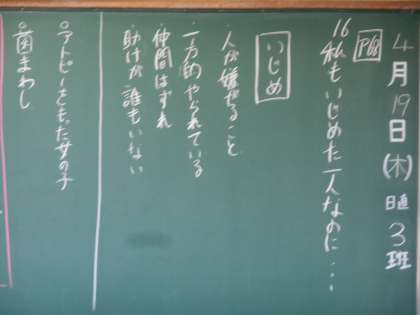 4月19日(木)日直3班
P98
16 私もいじめた一人なのに・・・
いじめ
・人が嫌がること
・一方的やられている
仲間はずれ
助けが誰もいない
○アトピーをもった女の子
○菌まわし